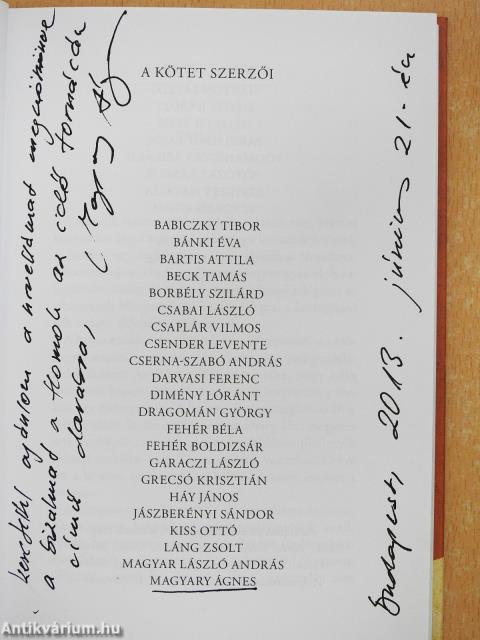 A KÖTET SZERZŐI
BABICZKY TIBOR
BÁNKI ÉVA
BARTIS ATTILA
BECK TAMÁS
BORBÉLY SZILÁRD
CSABAI LÁSZLÓ
CSAPLÁR VILMOS
CSENDER LEVENTE
CSERNA-SZABÓ ANDRÁS
DARVASI FERENC
DIMÉNY LÓRÁNT
DRAGOMÁN GYÖRGY
FEHÉR BÉLA
FEHÉR BOLDIZSÁR
GARACZI LÁSZLÓ
GRECSÓ KRISZTIÁN
HÁY JÁNOS
JÁSZBERÉNYI SÁNDOR
KISS OTTÓ
LÁNG ZSOLT
MAGYAR LÁSZLÓ ANDRÁS
MAGYARY ÁGNES
szeretettel ajánlom a novellámat
a bizalmad a az idő tornácán
című darabra,
Magyary Á
Budapest, 2013. június 21-én
Antikvárium.hu